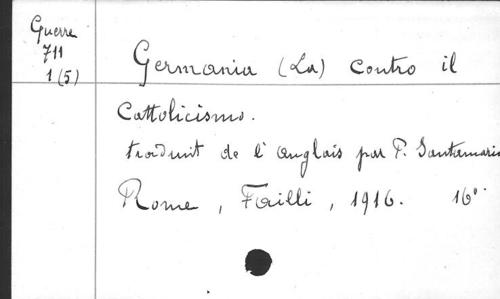 Guerre
711
1(5)
Germania (La) contro il
Cattolicismo.
traduit de l'anglais par P. Santamaria
Rome, Failli, 1916. 16°